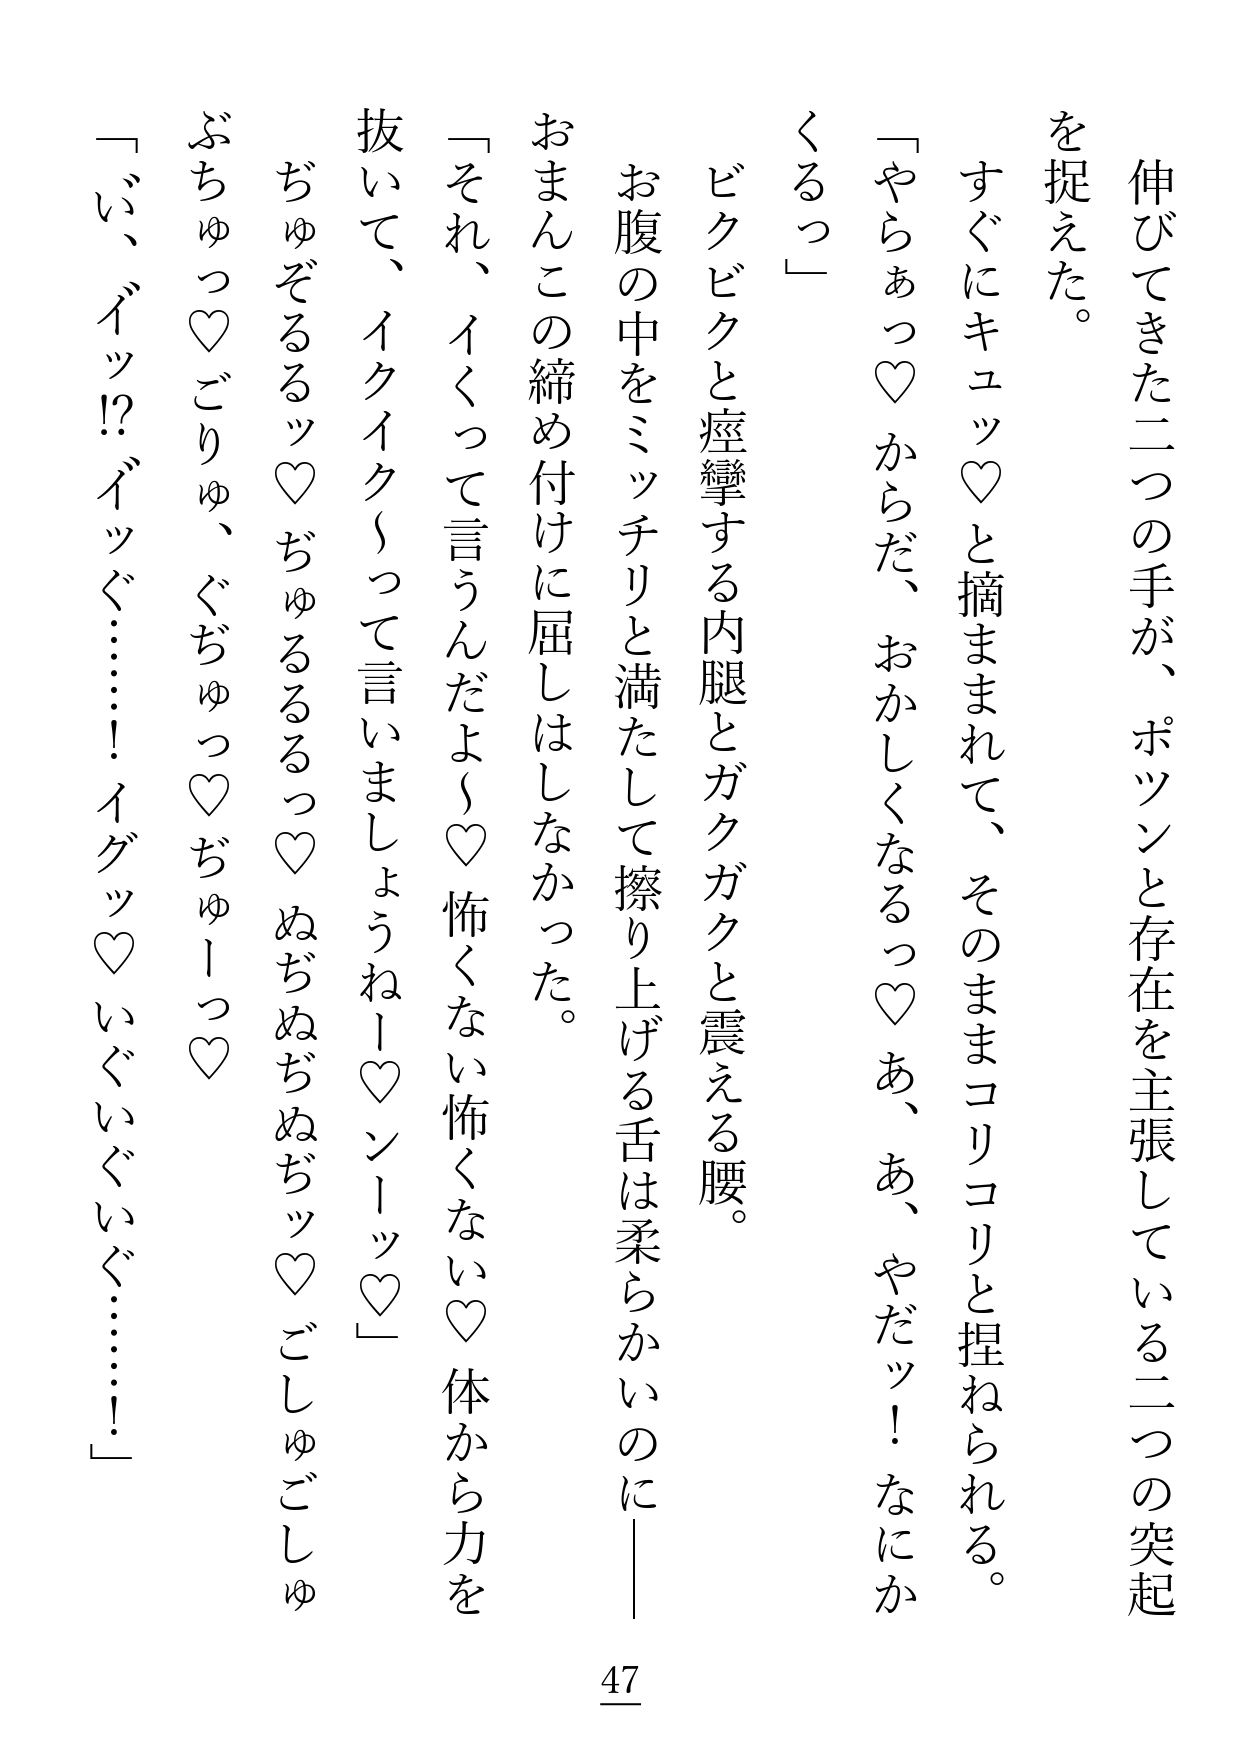 伸びてきた二つの手が、ポツンと存在を主張している二つの突起
を捉えた。
すぐにキュッ♡と摘ままれて、そのままコリコリと捏ねられる。
「やらぁっ♡ からだ、おかしくなるっ♡ あ、あ、やだッ！ なにか
くるっ」
ビクビクと痙攣する内腿とガクガクと震える腰。
お腹の中をミッチリと満たして擦り上げる舌は柔らかいのに――
おまんこの締め付けに屈しはしなかった。
「それ、イくって言うんだよ～♡ 怖くない怖くない♡ 体から力を
抜いて、イクイク～って言いましょうねー♡ ンーッ♡」
ぢゅぞるるッ♡ ぢゅるるるっ♡ ぬぢぬぢぬぢッ♡ ごしゅごしゅ
ぶちゅっ♡ ごりゅ、ぐぢゅっ♡ ぢゅーっ♡
「い゛、イ゛ッ!? イ゛ッぐ……！ イグッ♡ いぐいぐいぐ……！」
47